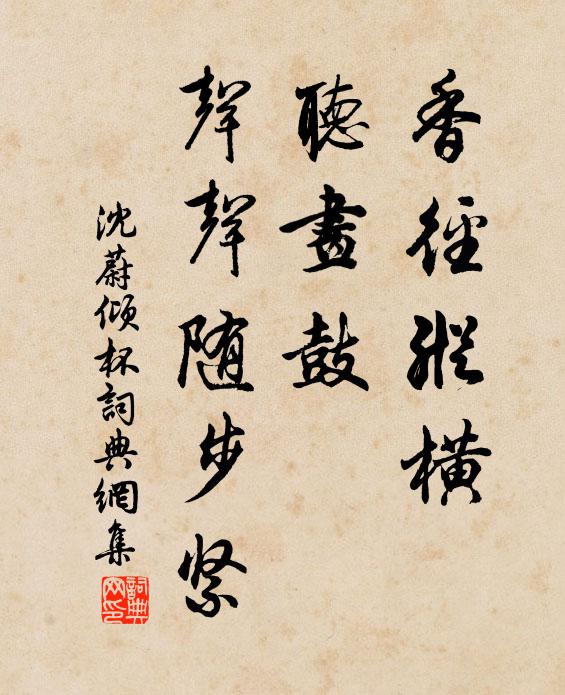 香徑縱橫
聽畫鼓
聲聲随步紧
沈蔚傾杯詞典網集
詞典網印